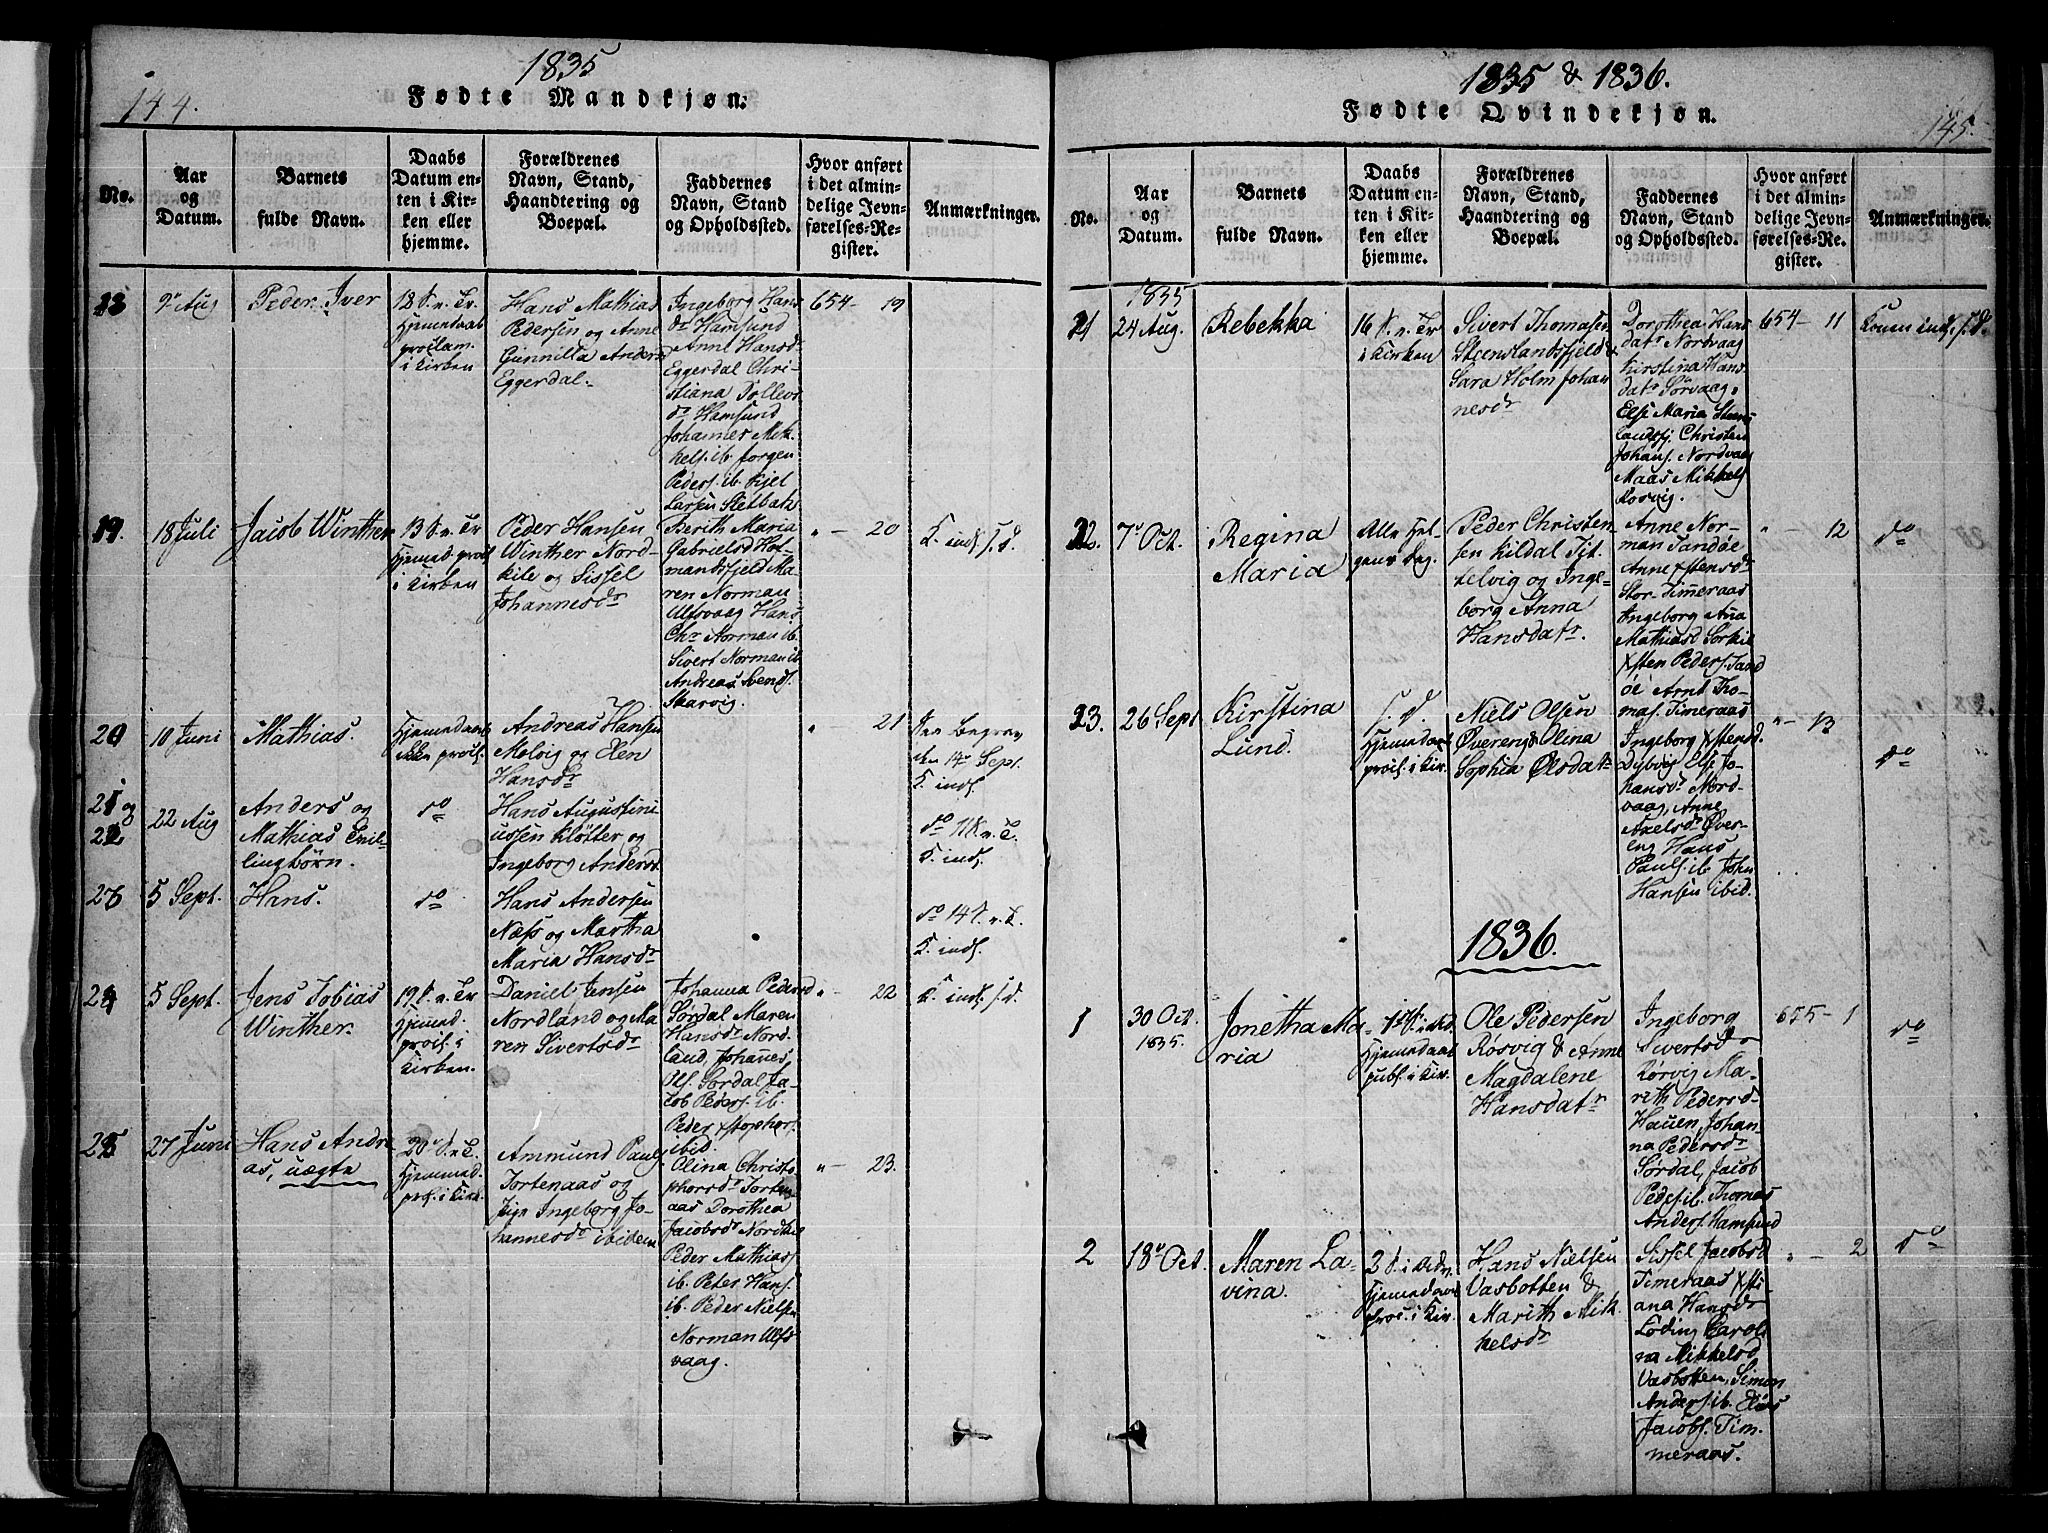 144.
1835
Fødte Mandkjøn.
No.
Aar
og
Datum.
Barnets
fulde Navn.
Daabs
Datum en-
ten i Kir-
ken eller
hjemme.
Forældrenes
Navn, Stand,
Haandtering og
Boepæl.
Faddernes
Navn, Stand
og Opholdssted.
Hvor anført
i det almin-
delige Jevn-
førelses-Re-
gister.
Anmærkninger.
18
2' Aug
Peder Iver
18 S. e. Tr.
Hjemedaab
proclam.
i Kirken
Hans Mathias
Pedersen og Anne
Gunnilla Andersd
Eggerdal.
Ingeborg Hans
dr Hamsund
Anne Hansd.
Eggerdal Chri-
stiana Tollevs
dr Hamsund
Johannes Mik-
kels. ib. Jørgen
Peders. ib. Kjel
Larsen Sletbak
654- 19
19.
18 Juli
Jacob Winther
13 S. e. Tr
Hjemed. procl
i Kirken
Peder Hansen
Winther Nord-
kile og Sissel
Johannesdr
Berith Maria
Gabrielsd Hof-
mandsfjeld Ma-
ren Norman
Ulfsvaag Hans
Chr Norman ib.
Sivert Norman ib
Andreas Svends.
Skarvig.
" - 20
K. inds. s. d.
20
10 Juni
Mathias.
Hjemedaab
ikke procl.
Andreas Hansen
Molvig og Elen
Hansdr
" - 21
Begrav
den 14de Sept.
K. inds.
21 og
22
22 Aug
Anders og
Mathias Tvil-
lingbörn.
do
Hans Augustini-
ussen Kløtter og
Ingeborg Andersd.
do 11 S. e. T.
K. inds.
23
5 Sept.
Hans.
do
Hans Andersen
Næss og Martha
Maria Hansdr
do 14 S. e. T.
K. inds.
24
5 Sept.
Jens Tobias
Winther.
19 S. e. Tr
Hjemed.
procl. i
Kirken.
Daniel Jensen
Nordland og Ma-
ren Sivertsdr
Johanna Pedersd
Sørdal Maren
Hansdr Nord-
land, Johanes
Ols. Sørdal Ja-
cob Peders. ib.
Peder Xstophers.
ibid.
" - 22
K. inds. s. d.
25
27 Juni
Hans Andre-
as, uægte
20' S. e. T.
Hjemmed.
procl. i Kirk.
Ammund Pauls
Tortenaas og
Pige Ingeborg Jo-
hannesdr ibidem
Olina Christo-
phorsdr Torten-
aas Dorothea
Jacobsdr Nordkil
Peder Mathias
ib. Peter Hans.
ib. Peder Nielsen
Norman Ulfs
vaag.
" - 23.
1835 & 1836.
Fødte Qvindekjøn.
145.
No.
Aar
og
Datum.
Barnets
fulde Navn.
Daabs
Datum en-
ten i Kir-
ken eller
hjemme.
Forældrenes
Navn, Stand,
Haandtering og
Boepæl.
Faddernes
Navn, Stand
og Opholdssted.
Hvor anført
i det almin-
delige Jevn-
førelses-Re-
gister.
Anmærkninger.
1835
21
24 Aug.
Rebekka
16 S. e. Tr
i Kirken
Sivert Thomasen
Steenslandsfjeld &
Sara Holm Johan
nesdr
Dorothea Hans
datr Nordvaag
Kirstina Hans
datr Sørvaag.
Else Maria Steens
landsfj. Christen
Johans. Nordvaag
Maas Mikkels
Korvig.
654- 11
Konen inds. s. d.
22.
7' Oct.
Regina
Maria
Alle Hel-
gens Dag.
Peder Christen-
sen Kildal Tit-
telvig og Inge-
borg Anna
Hansdatr.
Anne Nor-
man Tandøe
Anne Xstensdr
Stor-Timeraas
Ingeborg Ana
Mathiasd Sorkil
Xsten Peders. Tand
öe Arnt Tho-
mas. Timeraas
" - 12
do
23.
26 Sept
Kirstina
Lund.
s. d.
Hjemedaab
procl. i Kir.
Niels Olsen
Øvereng & Olina
Sophia Olsdatr
Ingeborg Xstensd.
Dybvig Else Jo-
hansdr Nord-
vaag, Anne
Axelsdr Øver-
eng Hans
Pauls. ib. John
Hansen ibid.
" - 13
do
1836.
1
30 Oct.
1835.
Jonetha Ma-
ria
1 S. i Adv.
Hjemedaab
publ. i Kir.
Ole Pedersen
Rösvig & Anne
Magdalene
Hansdatr
Ingeborg
Sivertsdr
Rørvig Ma-
rith Pedersdr
Hauen, Johan-
na Pedersdr
Sørdal, Jacob
Peders. ib. Thomas
Anders. Hamsund
655- 1
do
2
18' Oct.
Maren La-
vina.
3 S. i Adv.
Hjemedaab
procl. i Kir.
Hans Nielsen
Vasbotten &
Marith Mik-
kelsdr
Sissel Jacobsd
Timeraas Xsti-
ana Hansdr
Løding Caroli
na Mikkelsd
Vasbotten, Simon
Anders. ib. Elias
Jacobs. Tim-
meraas.
" - 2
do